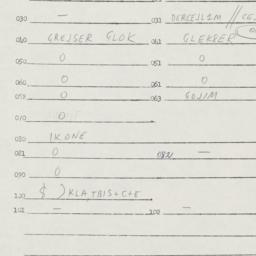 030. — 031 DERCEJLIM //
040 GREJSER GLOK 041 GLEKSER
050. 0 051 0
060 0 061 0
0 063 GOJIM
070 0
080 IKONE
081 0 082 —
090 0
) KLA, TBIS + C + E
— —